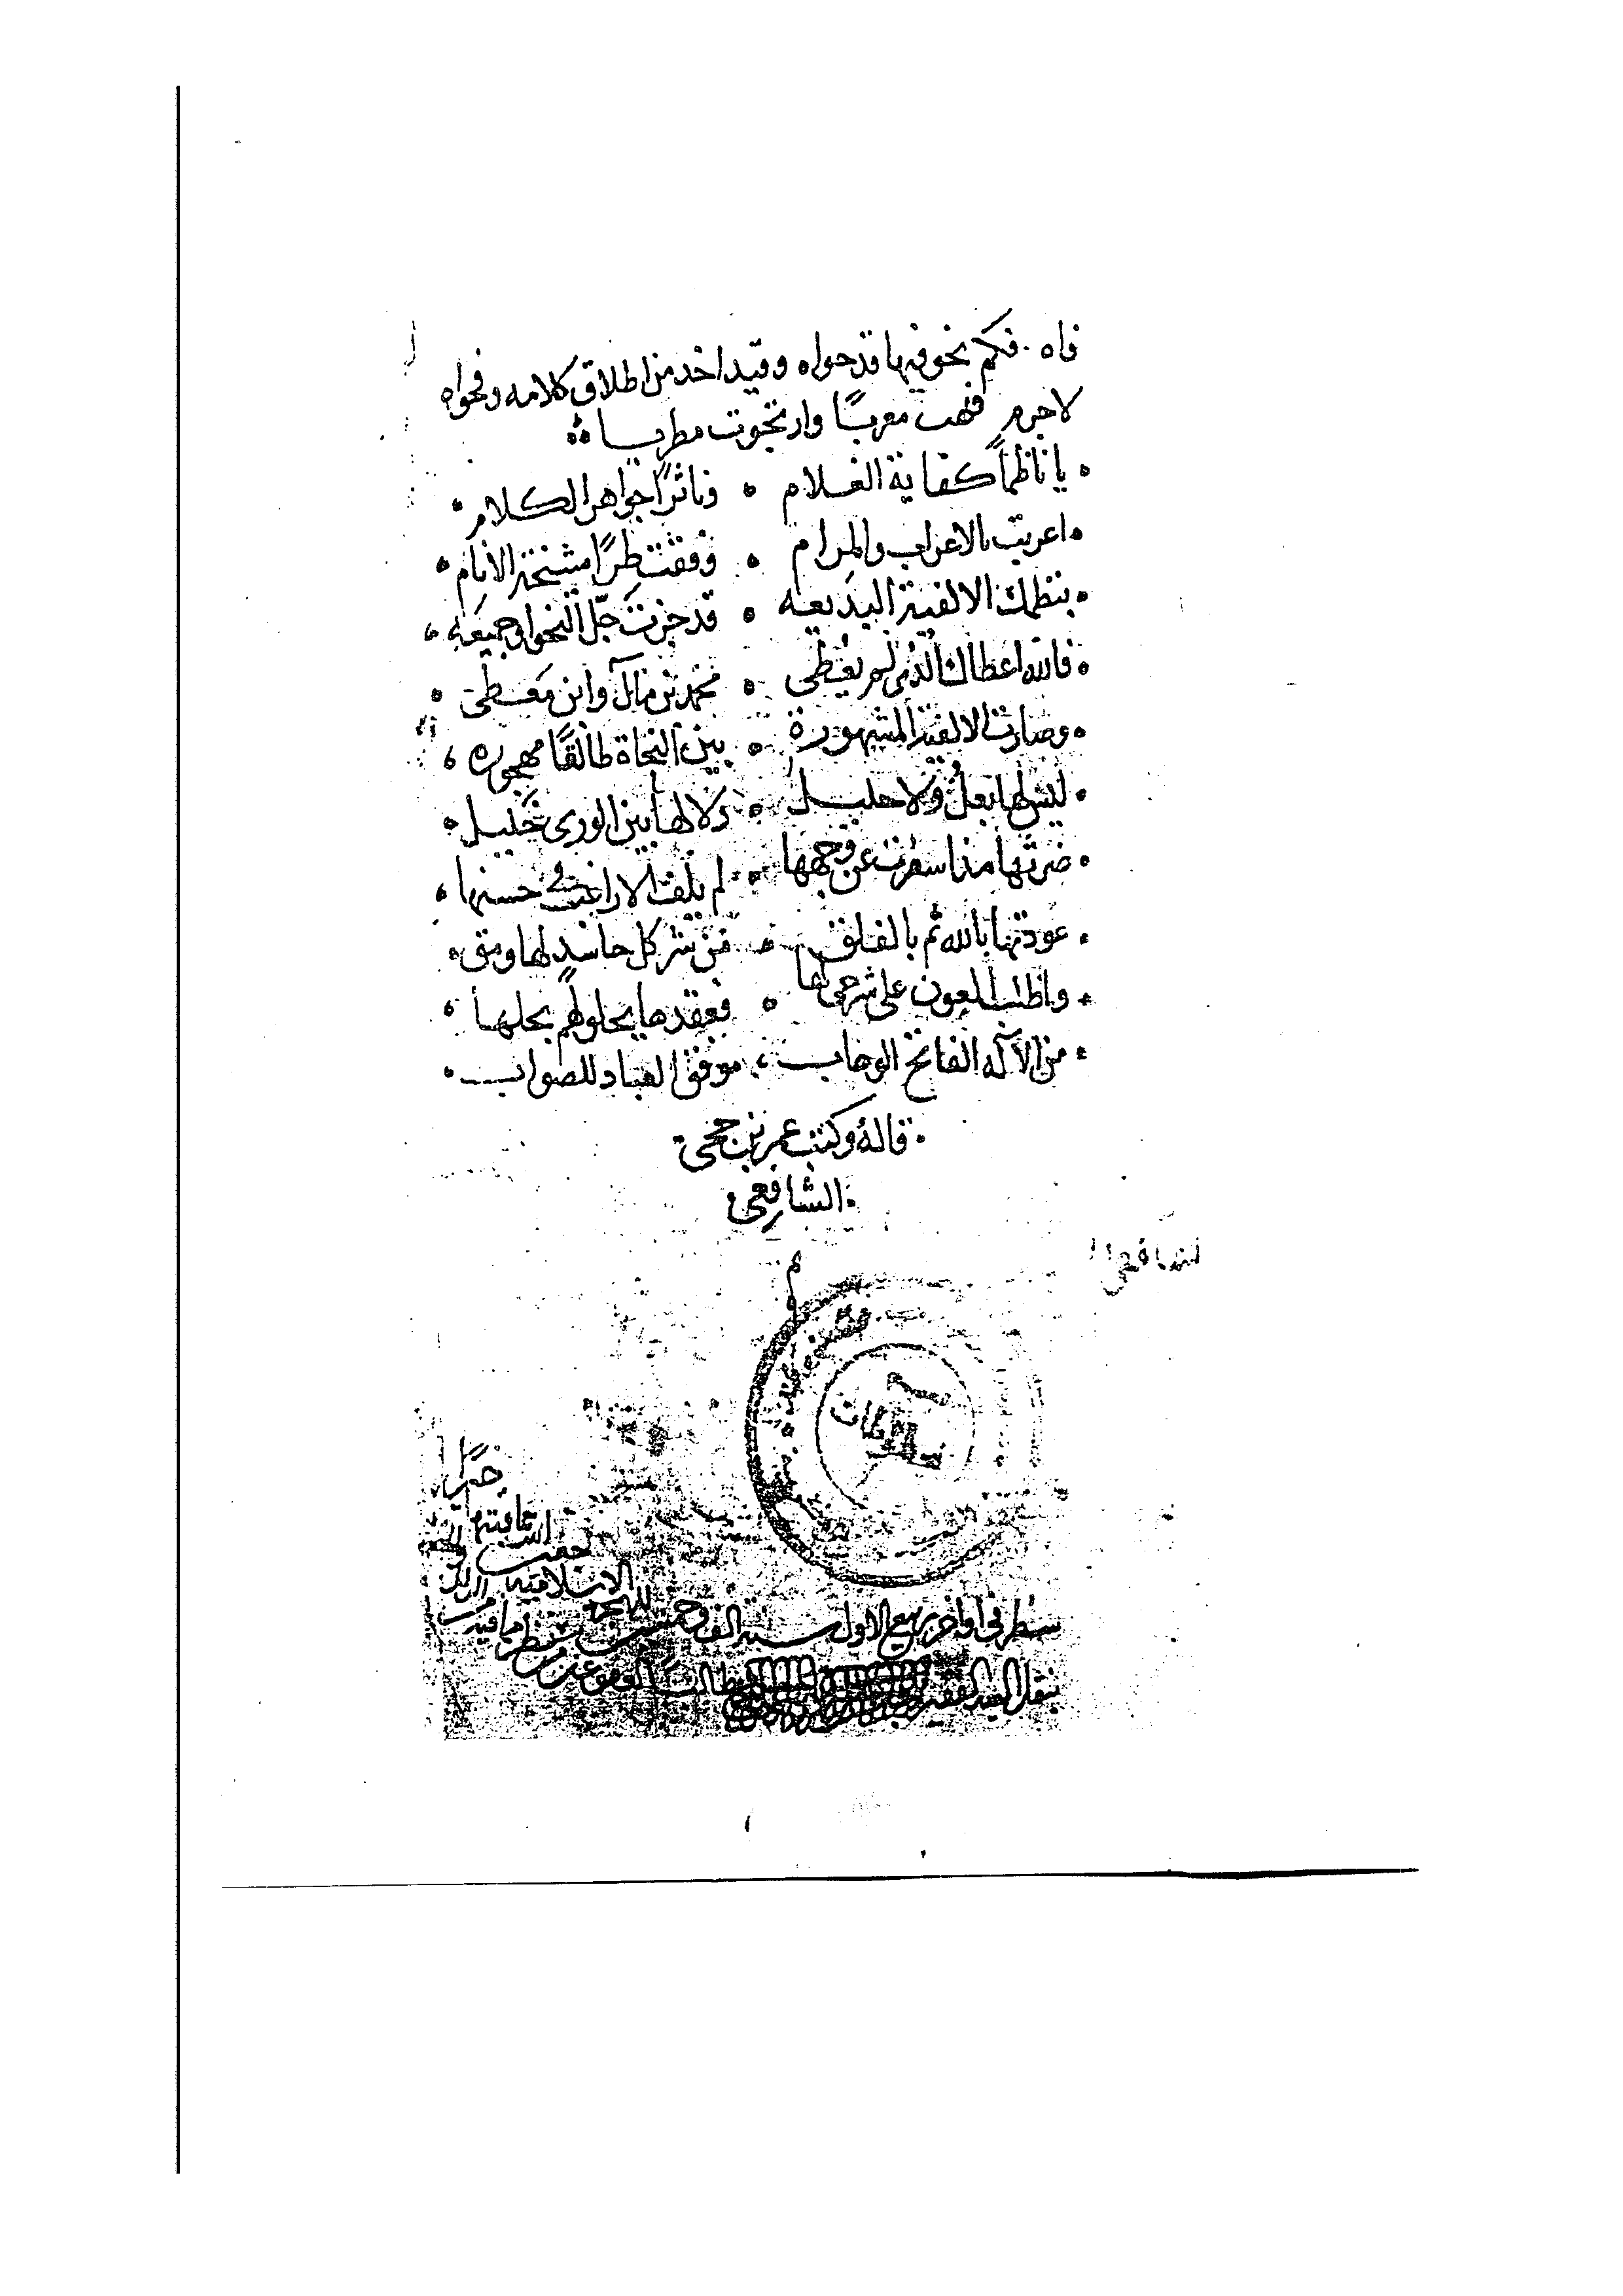 فاه . فكم نحو فيها قد حواه وقيد اخذ من اطلاق كلامه وفحواه
لاجرم فهت معربًا وارتجوت مطربا
يا ناظمًا كفاية الغلام • وناثرًا جواهر الكلام •
• اعربت بالاعراب والمرام • وفقت طرًا مشيخة الانام •
• بنظمك الالفية البديعه • قد حزت جل النحو او جميعه •
• فالله اعطاك الذى لم يعطى • محمد بن مالك وابن معطى •
• وصارت الالفية المشهورة • بين النحاة طالقًا مهجوره •
• ليس لها بعل ولا حليل • ولا لها بين الورى خليل •
• ضرتها مذ اسفرت عن وجهها • لم يلف الا راغب فى حسنها •
• عوذتها بالله ثم بالفلق • من شر كل حاسد لها ومق •
• واطلب العون على شرحى لها • فعقدها يحلو لهم بحلها •
• من الاله الفاتح الوهاب • موفق العباد للصواب •
• قاله وكتب عمر بن حجى
• الشافعى
لشافعى
سطر فى اواخر ربيع الاول سنة الف وخمسين
بنقل العبد الفقير طالب العفو